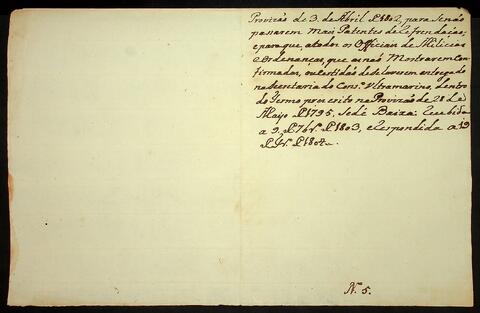 Provizão de 3. de Abril de 1802, para se não
passarem mais Patentes de
e para que, a todos os Officiaes de Milicias
e Ordenanças, que as não Mostrarem Con-
firmadas, ou Certidão de as terem entregado
na Secretaria do Cons.º Ultramarino, dentro
do Termo prescrito na Provizão de 28 de
Mayo de 1795, se dê Baixa:
a 9. de 7br.º de 1803, e Respondida a 19
de de
N.º 5.